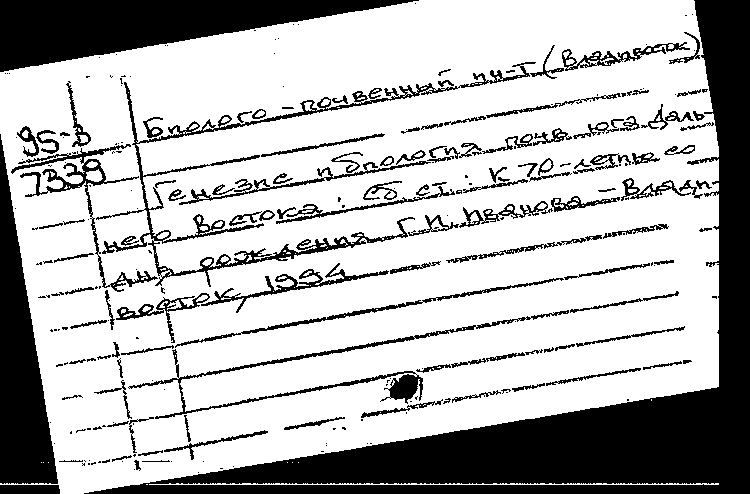 95-3
7339
Биолого-почвенный ин-т (Владивосток)
Генезис и биология почв юга Даль-
него Востока : Сб. ст. : К 70-летию со
дня рождения Г.И. Иванова - Влади-
восток, 1994